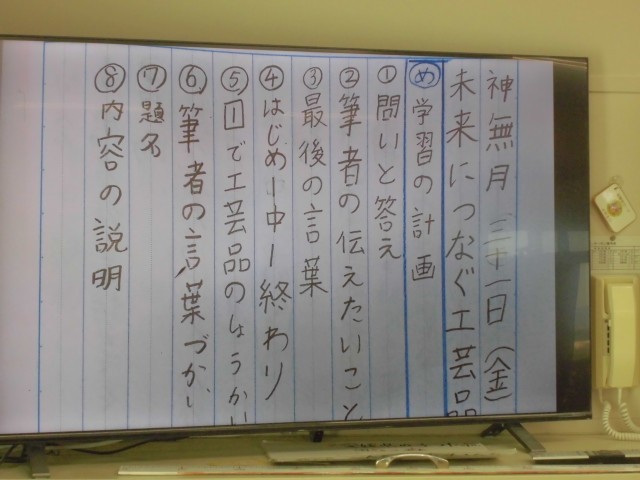 神無月（三十一日（金）
未来につなぐ工芸品
め 学習の計画
①問いと答え
②筆者の伝えたいこと
③最後の言葉
④はじめー中ー終わり
⑤1で工芸品のしょうかい
⑥筆者の言葉づかい
⑦題名
⑧内容の説明